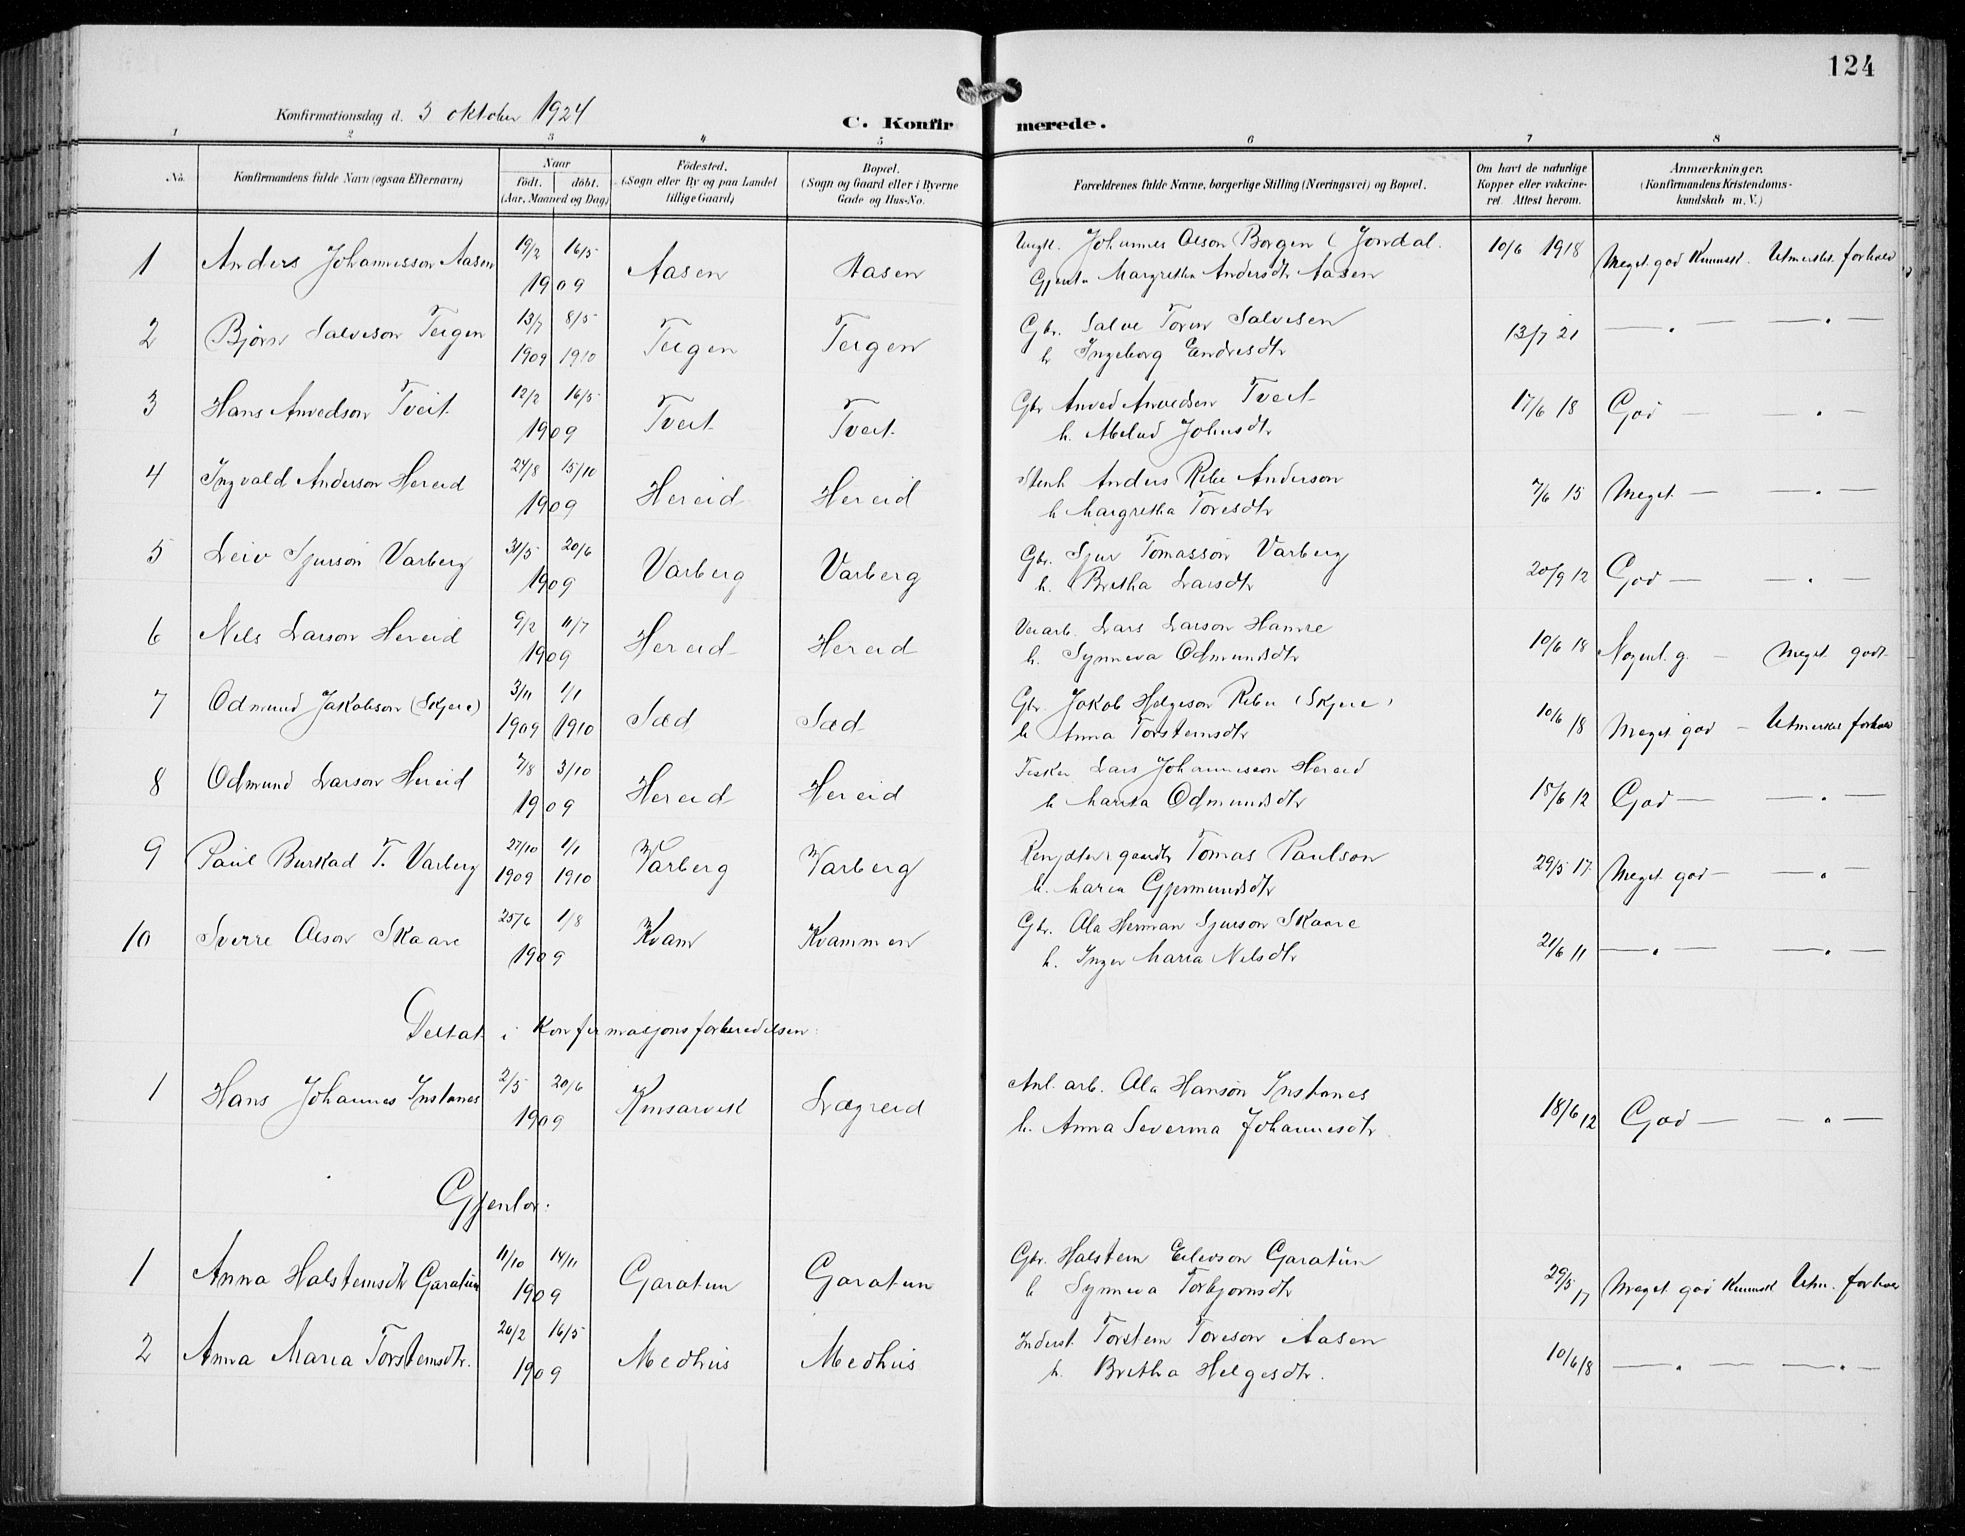 124
Konfirmationsdag d. 5 oktober 1924
C. Konfirmerede.
1 2 3 4 5 6 7 8
No. Konfirmandens fulde Navn (ogsaa Efternavn) Naar födt. döbt. (Aar, Maaned og Dag) Födested. (Sogn eller By og paa Landet tillige Gaard) Bopæl. (Sogn og Gaard eller i Byerne Gade og Hus-No. Forældrenes fulde Navne, borgerlige Stilling (Næringsvei) og Bopæl. Om havt de naturlige Kopper eller vakcineret. Attest herom. Anmærkninger. (Konfirmandens Kristendomskundskab m. V.)
1 Anders Johannesson Aasen 19/2 16/5 1909 Aasen Aasen Ungk. Johannes Olson Borgen (Jondal. 10/6 1918 Meget god Kunnsk. Utmerket forhold
Gjenta Margretha Andersdtr Aasen
2 Bjørn Salveson Teigen 13/7 1909 8/5 1910 Teigen Teigen Gbr. Salve Toren Salvesen 13/7 21 — " — — " —
h Ingeborg Endresdtr
3 Hans Anvedson Tveit 12/2 16/5 1909 Tveit Tveit Gbr Anved Anvedsen Tveit 17/6 18 God — — " —
h. Johnsdtr
4 Ingvald Anderson Hereid 24/8 15/10 1909 Hereid Hereid Anders Anderson 7/6 15 Meget — — " —
h Margretha Toresdtr
5 Leiv Sjurson Varberg 31/5 20/6 1909 Varberg Varberg Gbr. Sjur Tomasson Varberg 20/9 12 God — — " —
h. Bretha Larsdtr
6 Nils Larson Hereid 9/2 11/7 1909 Hereid Hereid Lars Larson Hamre 10/6 18 g. — Meget godt
h. Synneva Odmundsdtr
7 Odmund Jakobson (Skjere) 3/11 1909 1/1 1910 Sæd Sæd Gbr. Jakob Helgeson (Skjere) 10/6 18 Meget god — Utmerket forhold
h Anna Torsteinsdtr
8 Odmund Larson Hereid 7/8 3/10 1909 Hereid Hereid Fisker Lars Johannesson Hereid 15/6 12 God — — " —
h Marita Odmundsdtr
9 Paul Burkad T. Varberg 27/10 1909 1/1 1910 Varberg Varberg Tomas Paulson 29/5 17 Meget god — — " —
h. Maria Gjermundsdtr
10 Sverre Olson Skaare 25/6 1/8 1909 Kvam Kvammen Gbr. Ola Herman Sjurson Skaare 21/6 11 — " — — " —
h. Inger Maria Nilsdtr
Deltat i Konfirmasjonsforberedelsen:
1 Hans Johannes Instanes 2/5 20/6 1909 Kinsarvik Lægreid Anl. arb. Ola Hanson Instanes 18/6 12 God — — " —
h. Anna Severina Johannesdtr.
Gjentor:
1 Anna Halsteinsdtr Garatun 11/10 14/11 1909 Garatun Garatun Gbr. Halstein Eilevson Garatun 29/5 17 Meget god Kunnsk Utm. forhold
h Synneva Torbjørnsdtr
2 Anna Maria Torsteinsdtr. 20/2 16/5 1909 Medhus Medhus Inderst Torstein Toreson Aasen 10/6 18 — " — — " —
h. Bretha Helgesdtr.